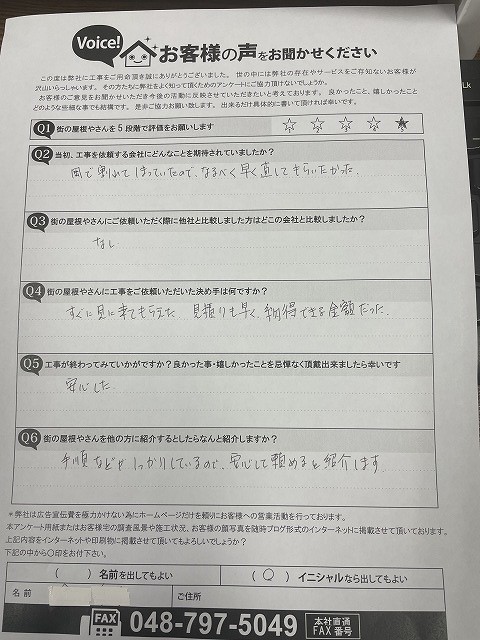 Voice!
お客様の声をお聞かせください
この度は弊社に工事をご用命頂き誠にありがとうございました。世の中には弊社の存在やサービスをご存知ないお客様が
沢山いらっしゃいます。その方たちに弊社をよく知って頂くためのアンケートにご協力頂けないでしょうか。
お客様のご意見をお聞かせいただき今後の活動に反映させていただきたいと考えております。良かったこと、嬉しかったこと
どのような些細な事でも結構です。是非ご協力お願い致します。出来るだけ具体的に書いて頂ければ幸いです。
Q1 街の屋根やさんを5段階で評価をお願いします ☆ ☆ ☆ ☆ ★
Q2 当初、工事を依頼する会社にどんなことを期待されていましたか?
雨で割れてしまっていたので、なるべく早く直してもらいたかった。
Q3 街の屋根やさんにご依頼いただく際に他社と比較しました方はどこの会社と比較しましたか?
なし
Q4 街の屋根やさんに工事をご依頼いただいた決め手は何ですか?
すぐに見に来てもらえた。見積りも早く、納得できる金額だった。
Q5 工事が終わってみていかがですか?良かった事・嬉しかったことを忌憚なく頂戴出来ましたら幸いです
安心した。
Q6 街の屋根やさんを他の方に紹介するとしたらなんと紹介しますか?
手順などがしっかりしているので、安心して頼めると紹介します。
*弊社は広告宣伝費を極力かけない為にホームページだけを頼りにお客様への営業活動を行っております。
本アンケート用紙またはお客様宅の調査風景や施工状況、お客様の顔写真を随時ブログ形式のインターネットに掲載させて頂いております。
上記内容をインターネットや印刷物に掲載させて頂いてもよろしいでしょうか?
下記の中から〇印をお付下さい。
( ) 名前を出してもよい
(○) イニシャルなら出してもよい
名前
ご住所
FAX 048-797-5049 本社直通 FAX番号